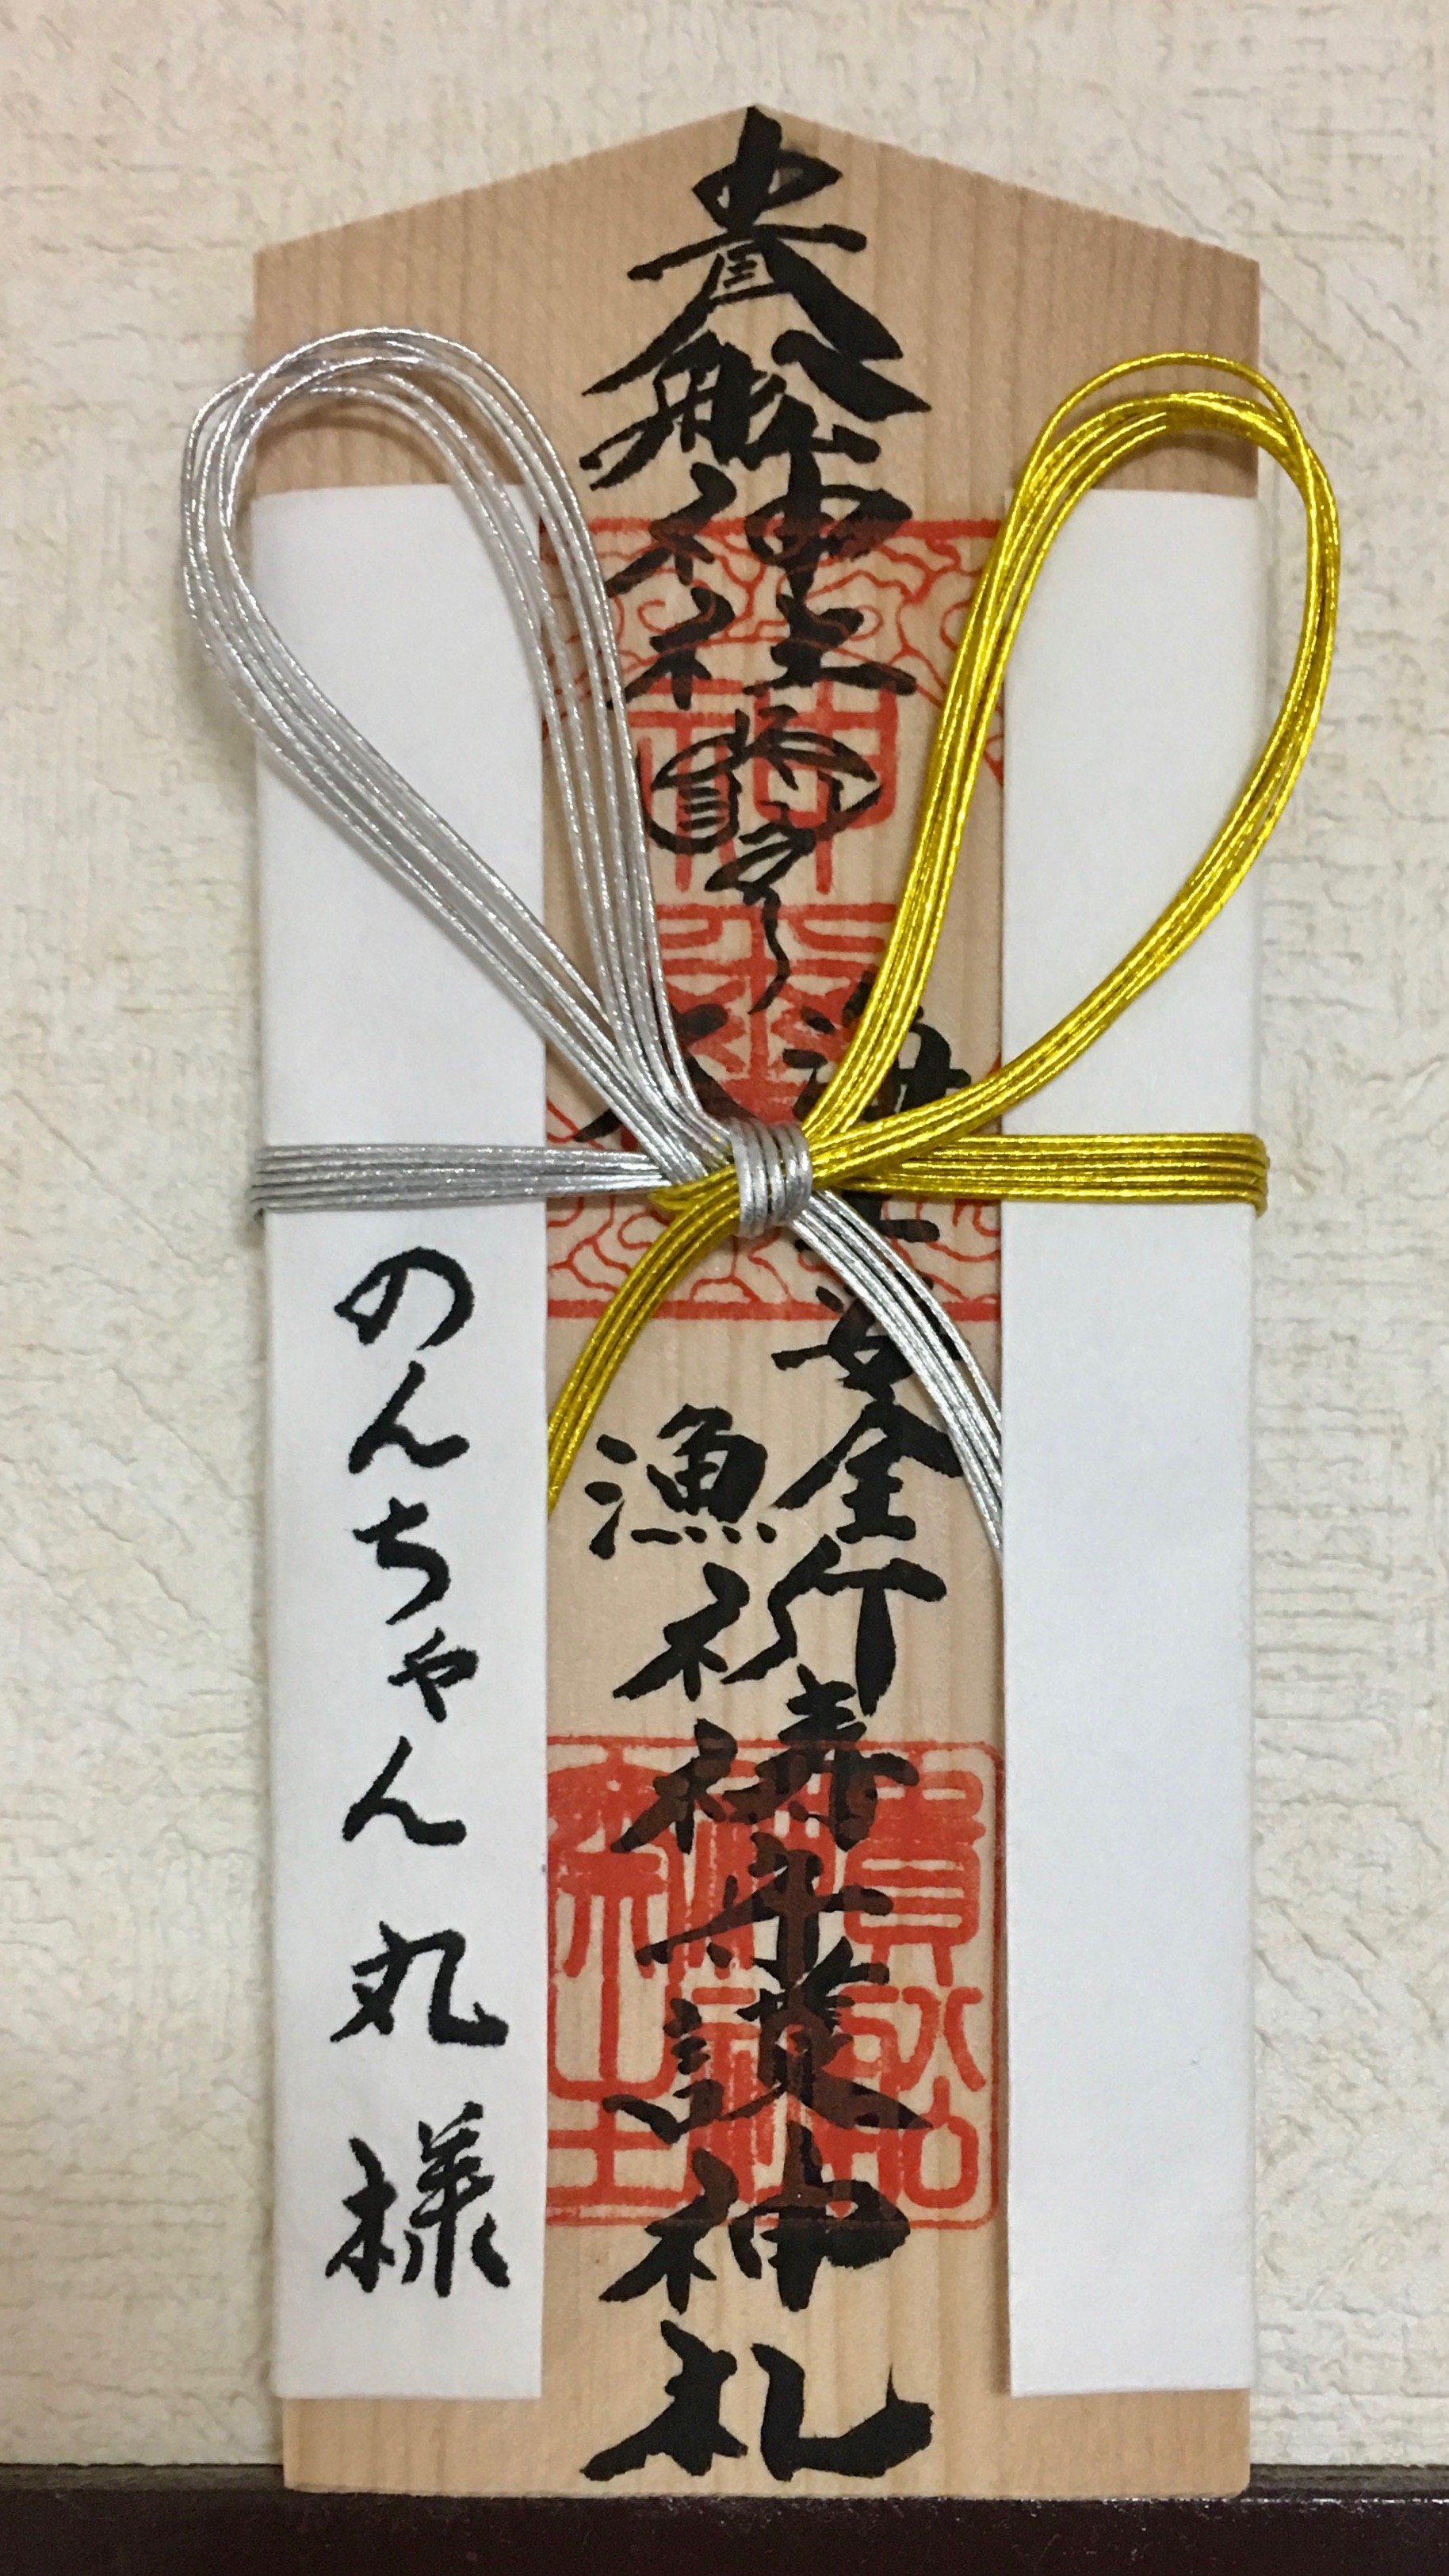 貴船神社
海上安全
大漁
祈祷牢護神札
のんちゃん丸様